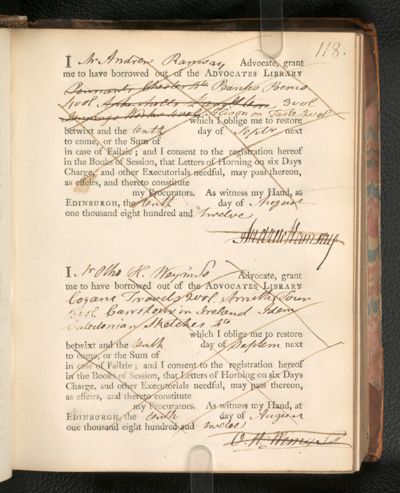 118.
I Mr Andrew Ramsay Advocate, grant
me to have borrowed out of the ADVOCATES LIBRARY
Pennants Chester 4to Banks Poems
2 vol 3 vol
Alison on Taste 2 vol
which I oblige me to restore
betwixt and the tenth day of Septr next
to come, or the Sum of
in case of Failzie; and I consent to the registration hereof
in the Books of Session, that Letters of Horning on six Days
Charge, and other Executorials needful, may pass thereon,
as effeirs, and thereto constitute
my Procurators. As witness my Hand, at
EDINBURGH, the tenth day of August
one thousand eight hundred and twelve
Andrew Ramsay
I, Mr Otho H. Advocate, grant
me to have borrowed out of the ADVOCATES LIBRARY
Travels 2 vol Smiths Tour
3 vol Carrs tour in Ireland Idem
Caledonian Sketches 4to
which I oblige me to restore
betwixt and the tenth day of Septem next
to come, or the Sum of
in case of Failzie; and I consent to the registration hereof
in the Books of Session, that Letters of Horning on six Days
Charge, and other Executorials needful, may pass thereon,
as effeirs, and thereto constitute
my Procurators. As witness my Hand, at
EDINBURGH the tenth day of August
one thousand eight hundred and twelve
O. H.